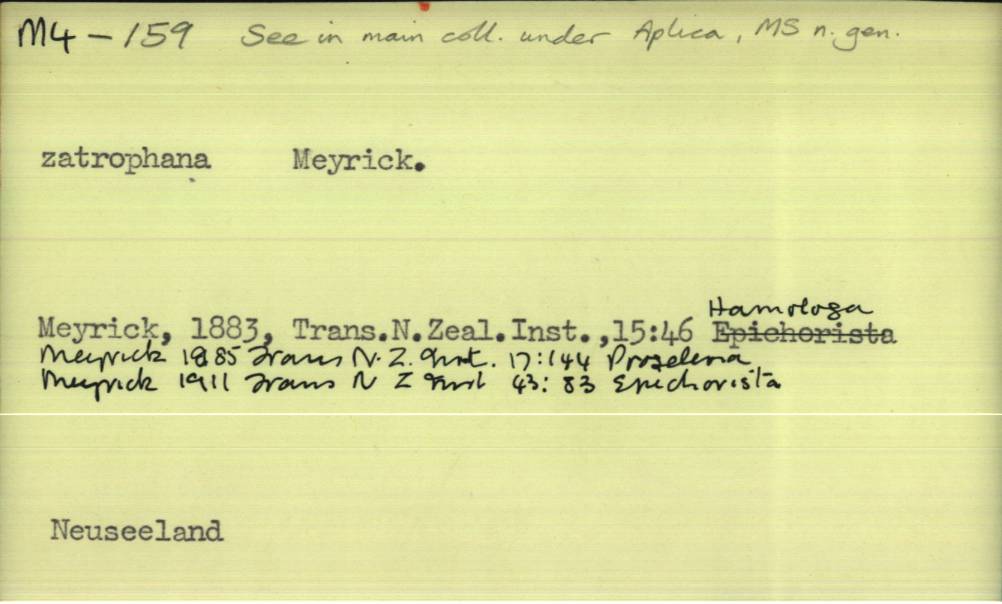 M4-159 See in main coll. under Aplica, MS n. gen.
zatrophana Meyrick.
Hamologa
Meyrick, 1883, Trans.N.Zeal.Inst.,15:46 Epichorista
Meyrick 1885 Trans N. Z. Inst. 17:144 Proselena
Meyrick 1911 Trans N Z Inst 43: 83 Epichorista
Neuseeland